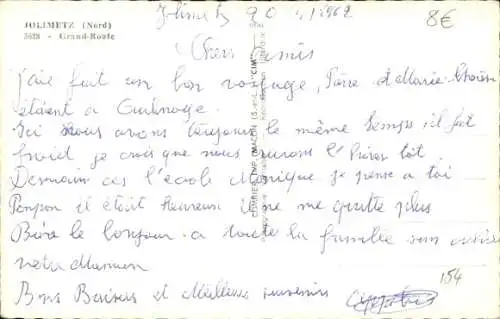 JOLIMETZ (Nord)
5628 - Grand-Route
Jolimetz
8€
Chers Amis
J'aie fait un bon voyage, Pière et Marie
étaient a
Ici nous avons toujours le même temps il fait
froid je crois que nous aurons l'hiver tôt
Demain ces l'école Monique je pense a toi
Ponpon il était heureux il ne me quitte plus
Bien le bonjour a toute la famille sans
votre Maman
Bons Baisers et Meilleurs souvenirs
154
COMBIER IMP. MACON (S.-et-L.) "CIM"